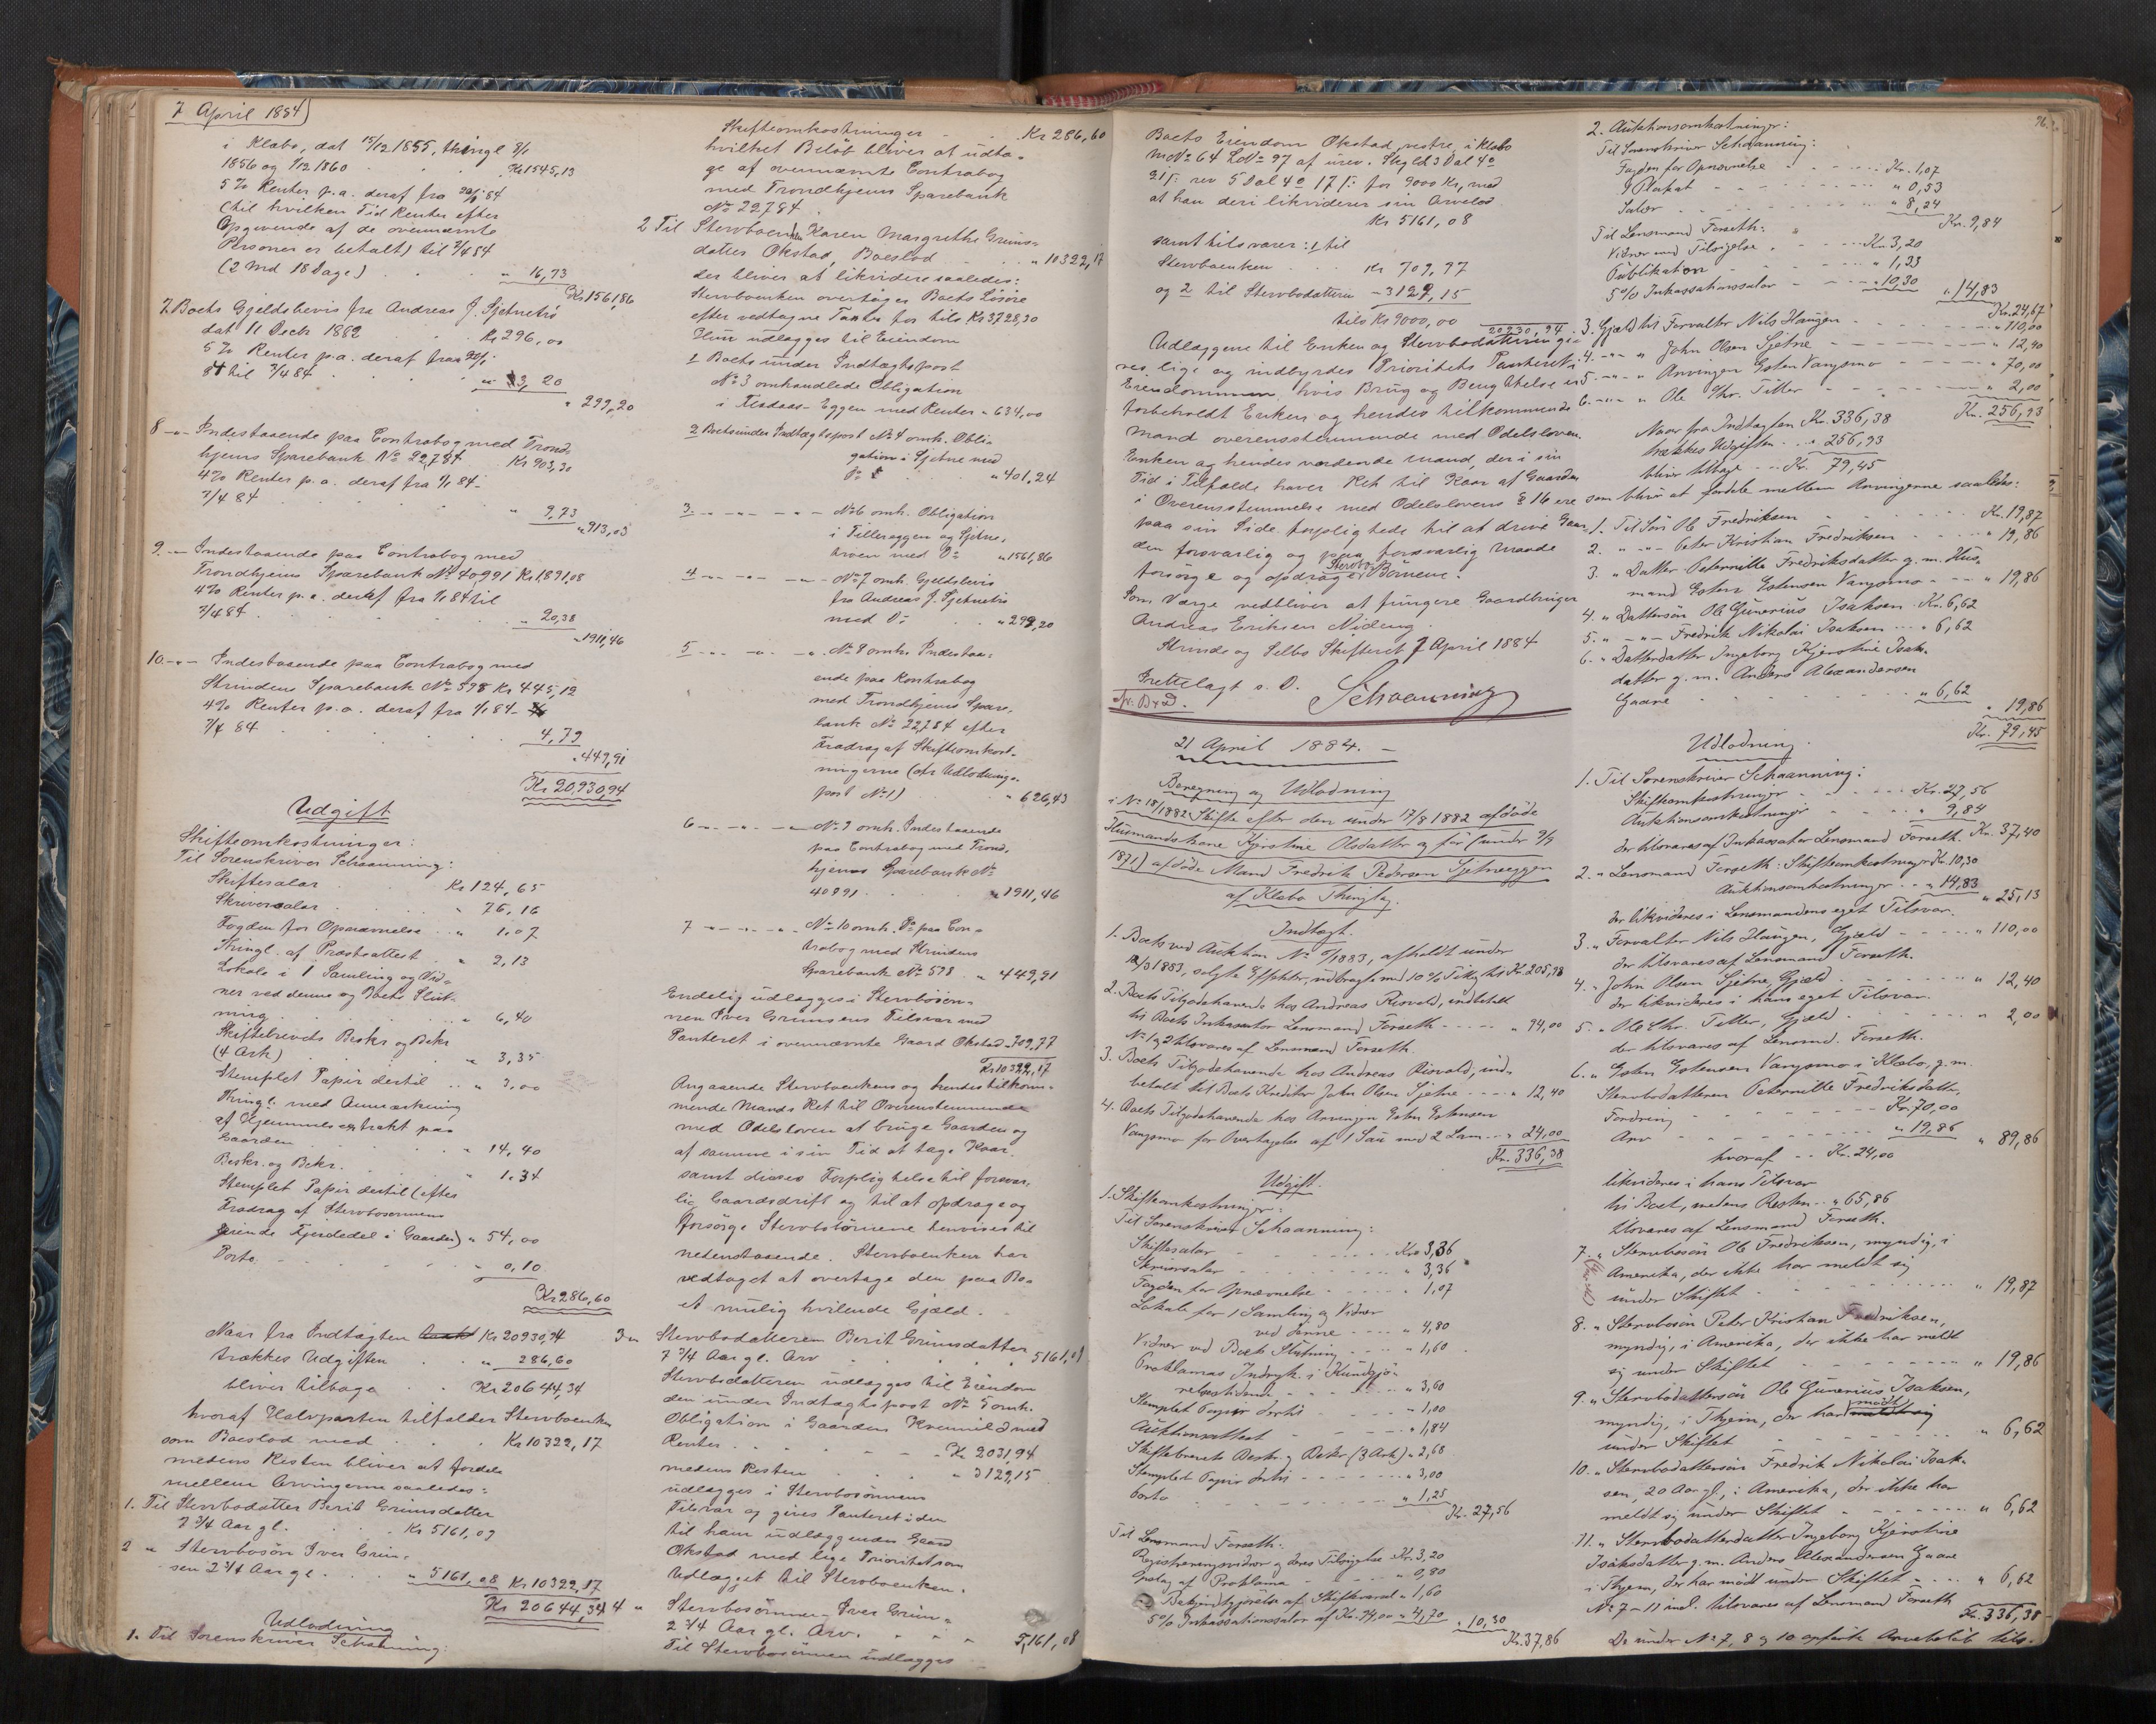 7 April 1884)
i Klæbo, dat 15/12 1855, thingl 8/1
1856 og 1/12 1860 Kr 1545,13
5% Renter p.a. deraf fra 20/1 84
(til hvilken Tid Renter efter
Opgivende af de overnævnte
Personer er betalt) til 7/4 84
(2 Md 18 Dage) " 16,73
Kr 1561,86
7. Boets Gjeldsbevis fra Andreas J. Sjetnetrø
dat 11 Decb 1882 Kr 296,00
5% Renter p.a. deraf fra
84 til 7/4 84 " 3,20
" 299,20
8 -"- Indestaaende paa Contrabog med Trond-
hjems Sparebank No 22,784 Kr 903,30
4% Renter p.a. deraf fra 1/1 84 -
7/4 84 " 9,73
" 913,03
9. -"- Indestaaende paa Contrabog med
Trondhjems Sparebank No 40991 Kr 1891,08
4% Renter p.a. deraf fra 1/1 84 til
7/4 84 " 20,38
" 1911,46
10. -"- Indestaaende paa Contrabog med
Strindens Sparebank No 598 Kr 445,12
4% Renter p.a. deraf fra 1/1 84 -
7/4 84 4,79
" 449,91
Kr 20930,94
Udgift
Skifteomkostninger:
Til Sorenskriver Schaanning:
Skiftesalær Kr 124,65
Skriversalær " 76,16
Fogden for Opnævnelse " 1,07
Thingl. af Præsteattest " 2,13
Lokale i 1 Samling og Vid-
ner ved denne og Boets Slut-
ning " 6,40
Skiftebrevets Beskr og Bekr
(4 Ark) " 3,35
Stemplet Papir dertil " 3,00
Thingl. med Anmærkning
af Hjemmelsextrakt paa
Gaarden " 14,40
Beskr. og Bekr. " 1,34
Stemplet Papir dertil (efter
Fradrag af Stervbosønnens
Fjerdedel i Gaarden) " 54,00
Porto " 0,10
Kr 286,60
Naar fra Indtægten Kr 20930,94
trækkes Udgiften " 286,60
bliver tilbage Kr 20644,34
hvoraf Halvparten tilfalder Stervboenken
som Boeslod med Kr 10322,17
medens Resten bliver at fordele
mellem Arvingerne saaledes:
1. Til Stervbodatter Berit Grimsdatter
7 3/4 Aar gl. Kr 5161,09
2 " Stervbosøn Iver Grim-
sen 2 3/4 Aar gl. " 5161,08 Kr 10322,17
Kr 20644,34
Udlodning
1. Til Sorenskriver Schaanning:
Skifteomkostninger Kr 286,60
hvilket Beløb bliver at udta-
ge af overnævnte Contrabog
med Trondhjems Sparebank
No 22,784.
2 Til Stervboenken Karen Margrethe Grims-
datter Økstad, Boeslod " 10322,17
der bliver at likvidere saaledes:
Stervboenken overtager Boets Løsøre
efter vedtagne Taxter for tils Kr 3728,30
Hun udlægges til Eiendom
1 Boets under Indtægtspost
No 3 omhandlede Obligation
i Eggen med Renter " 634,00
2 Boets under Indtægtspost No 4 omh. Obli-
gation i Sjetne med
Do " 401,24
3 - " - " - No 6 omh. Obligation
i Tillereggen og Sjetne-
trøen med Do " 1561,86
4 - " - " - No 7 omh. Gjeldsbevis
fra Andreas J. Sjetnetrø
med Do " 299,20
5 - " - " - No 8 omh. Indestaa-
ende paa Kontrabog
med Trondhjems Spare-
bank No 22,784 efter
Fradrag af Skifteomkost-
ningerne (cfr Udlodnings-
post No 1) " 626,43
6 - " - " - No 9 omh. Indestaaende
paa Contrabog med Trond-
hjems Sparebank No
40991 " 1911,46
7 - " - " - No 10 omh. Do paa Con-
trabog med Strindens
Sparebank No 598 " 449,91
Endelig udlægges i Stervbosøn-
nen Iver Grimsens Tilsvar med
Panteret i overnævnte Gaard Økstad " 709,77
Kr 10322,17
Angaaende Stervboenkens og hendes tilkom-
mende Mands Ret til Overensstemmende
med Odelsloven at bruge Gaarden og
af samme i sin Tid at tage Kaar
samt disses Forpligtelse til forsvar-
lig Gaardsdrift og til at opdrage og
forsørge Stervbobørnene henvises til
nedenstaaende. Stervboenken har
vedtaget at overtage den paa Bo-
et mulig hvilende Gjæld.
3 " Stervbodatteren Berit Grimsdatter
7 3/4 Aar gl. Arv 5161,09
Stervbodatteren udlægges til Eiendom
den under Indtægtspost No 5 omh.
Obligation i Gaarden med
Renter Kr 2031,94
medens Resten " 3129,15
udlægges i Stervbosønnens
Tilsvar og gives Panteret i den
til ham udlæggende Gaard
Økstad med lige Prioritet som
Udlægget til Stervboenken.
4 " Stervbosønnen Iver Grim-
2 3/4 Aar gl. Arv. 5161,08
Til Stervbosønnen udlægges
Boets Eiendom Økstad vestre, i Klæbo
MNo 64 LNo 97 af urev. Skyld 3 Dal 4 o
21 s. rev 5 Dal 4 o 17 s. for 9000 Kr, med
at han deri likviderer sin Arvelod
Kr 5161,08
samt tilsvarer: 1 til
Stervboenken Kr 709,77
og 2 til Stervbodatteren - 3129,15
tils Kr 9000,00
20930,94
Udlæggene til Enken og Stervbodatteren gi-
ves lige og indbyrdes Prioritets Panteret i
Eiendommen, hvis Brug og Benyttelse er
forbeholdt Enken og hendes tilkommende
Mand overensstemmende med Odelsloven.
Enken og hendes vordende Mand, der i sin
Tid i Tilfælde haver Ret til Kaar af Gaarden
i Overensstemmelse med Odelslovens § 16 ere
paa sin Side forpligtede til at drive Gaar-
den forsvarlig og paa forsvarlig Maade
forsørge og opdrage Stervbo Børnene.
Som Værge vedbliver at fungere Gaardbruger
Andreas Eriksen Nideng.
Strinde og Selbo Skifteret 7 April 1884
Schaanning
Brettelagt s. D.
21 April 1884. —
Beregning og Udlodning
i No 18/1882 Skifte efter den under 17/8 1882 afdøde
Husmandskone Kjerstine Olsdatter og før (under 9/9
1871) afdøde Mand Fredrik Pedersen Sjetneeggen
af Klæbo Thinglag.
Indtægt.
1. Boets ved Auktion No /1883, afholdt under
/3 1883, solgte Effekter, udbragt med 10% Tillæg tils Kr. 205,98
2. Boets Tilgodehavende hos Andreas Risvold, indbetalt
til Boets Inkassator Lensmand Forseth " 94,00
No 1 og 2 tilsvares af Lensmand Forseth.
3. Boets Tilgodehavende hos Andreas Risvold, ind-
betalt til Boets Kreditor John Olsen Sjetne " 12,40
4. Boets Tilgodehavende hos Arvingen Esten Estensen
Vangsmo for Overtagelse af 1 Sau med 2 Lam " 24,00
Kr. 336,38
Udgift.
1. Skifteomkostninger:
Til Sorenskriver Schaanning:
Skiftesalær Kr. 3,36
Skriversalær " 3,36
Fogden for Opnævnelse " 1,07
Lokale for 1 Samling og Vidner
ved denne " 4,80
Vidner ved Boets Slutning " 1,60
Proklamas Indryk. i Kundgjø-
relsestidende " 3,60
Stemplet Papir dertil " 1,00
Auktionsattest " 1,84
Skiftebrevets Beskr. og Bekr (3 Ark) " 2,68
Stemplet Papir dertil " 3,00
Porto " 1,25
Kr. 27,56
Til Lensmand Forseth:
Registreringsvidner og deres Tilsigelse Kr. 3,20
Opslag af Proklama " 0,80
Bekjendtgjørelse af Skiftevarsel " 1,60
5% Inkassationssalær af Kr. 94,00 " 4,70 " 10,30
Kr. 37,86
96.
2. Auktionsomkostninger:
Til Sorenskriver Schaanning:
Fogden for Opnævnelse Kr. 1,07
1 Plakat " 0,53
Salær " 8,24
Kr. 9,84
Til Lensmand Forseth:
Vidner med Tilsigelse Kr. 3,20
Publikation " 1,33
5% Inkassationssalær " 10,30 " 14,83
Kr. 24,67
3. Gjæld til Forvalter Nils Haugen " 110,00
4. -"- " John Olsen Sjetne " 12,40
5. -"- " Arvingen Esten Vangsmo " 70,00
6. -"- " Ole Chr. Tiller " 2,00
Kr. 256,93
Naar fra Indtægten Kr. 336,38
trækkes Udgiften " 256,93
bliver tilbage Kr. 79,45
som bliver at fordele mellem Arvingerne saaledes:
1. Til Søn Ole Fredriksen Kr. 19,87
2. " -"- Peter Kristian Fredriksen " 19,86
3. " Datter Petternille Fredriksdatter g. m. Hus-
mand Esten Estensen Vangsmo " 19,86
4. " Dattersøn Ole Gunerius Isaksen Kr. 6,62
5. " -"- Fredrik Nikolai Isaksen " 6,62
6. " Datterdatter Ingeborg Kjerstine Isak-
datter g. m. Anders Alexandersen
Gaare " 6,62
" 19,86
Kr. 79,45
Udlodning.
1. Til Sorenskriver Schaanning:
Skifteomkostninger Kr. 27,56
Auktionsomkostninger " 9,84
der tilsvares af Inkassator Lensmand Forseth. Kr. 37,40
2. " Lensmand Forseth: Skifteomkostninger Kr. 10,30
Auktionsomkostninger " 14,83
" 25,13
der likvideres i Lensmandens eget Tilsvar.
3. " Forvalter Nils Haugen, Gjæld " 110,00
der tilsvares af Lensmand Forseth.
4. " John Olsen Sjetne, Gjæld " 12,40
der likvideres i hans eget Tilsvar.
5. " Ole Chr. Tiller, Gjæld " 2,00
der tilsvares af Lensmd. Forseth.
6. " Esten Estensen Vangsmo i Klæbo, g. m.
Stervbodatteren Petternille Fredriksdatter,
Fordring Kr. 70,00
Arv " 19,86
" 89,86
hvoraf Kr. 24,00
likvideres i hans Tilsvar
til Boet, medens Resten " 65,86
tilsvares af Lensmand Forseth.
7. " Stervbosøn Ole Fredriksen, myndig, i
Amerika, der ikke har meldt sig
under Skiftet " 19,87
8. " Stervbosøn Peter Kristian Fredriksen,
myndig, i Amerika, der ikke har meldt
sig under Skiftet " 19,86
9. " Stervbodattersøn Ole Gunerius Isaksen,
myndig, i Thjem, der har mødt
under Skiftet " 6,62
10. " Stervbodattersøn Fredrik Nikolai Isak-
sen, 20 Aar gl., i Amerika, der ikke har
meldt sig under Skiftet " 6,62
11. " Stervbodatterdatter Ingeborg Kjerstine
Isaksdatter g. m. Anders Alexandersen Gaare
i Thjem, der har mødt under Skiftet " 6,62
No 7-11 incl. tilsvares af Lensmand Forseth
Kr. 336,38
De under No 7, 8 og 10 opførte Arvebeløb tils.